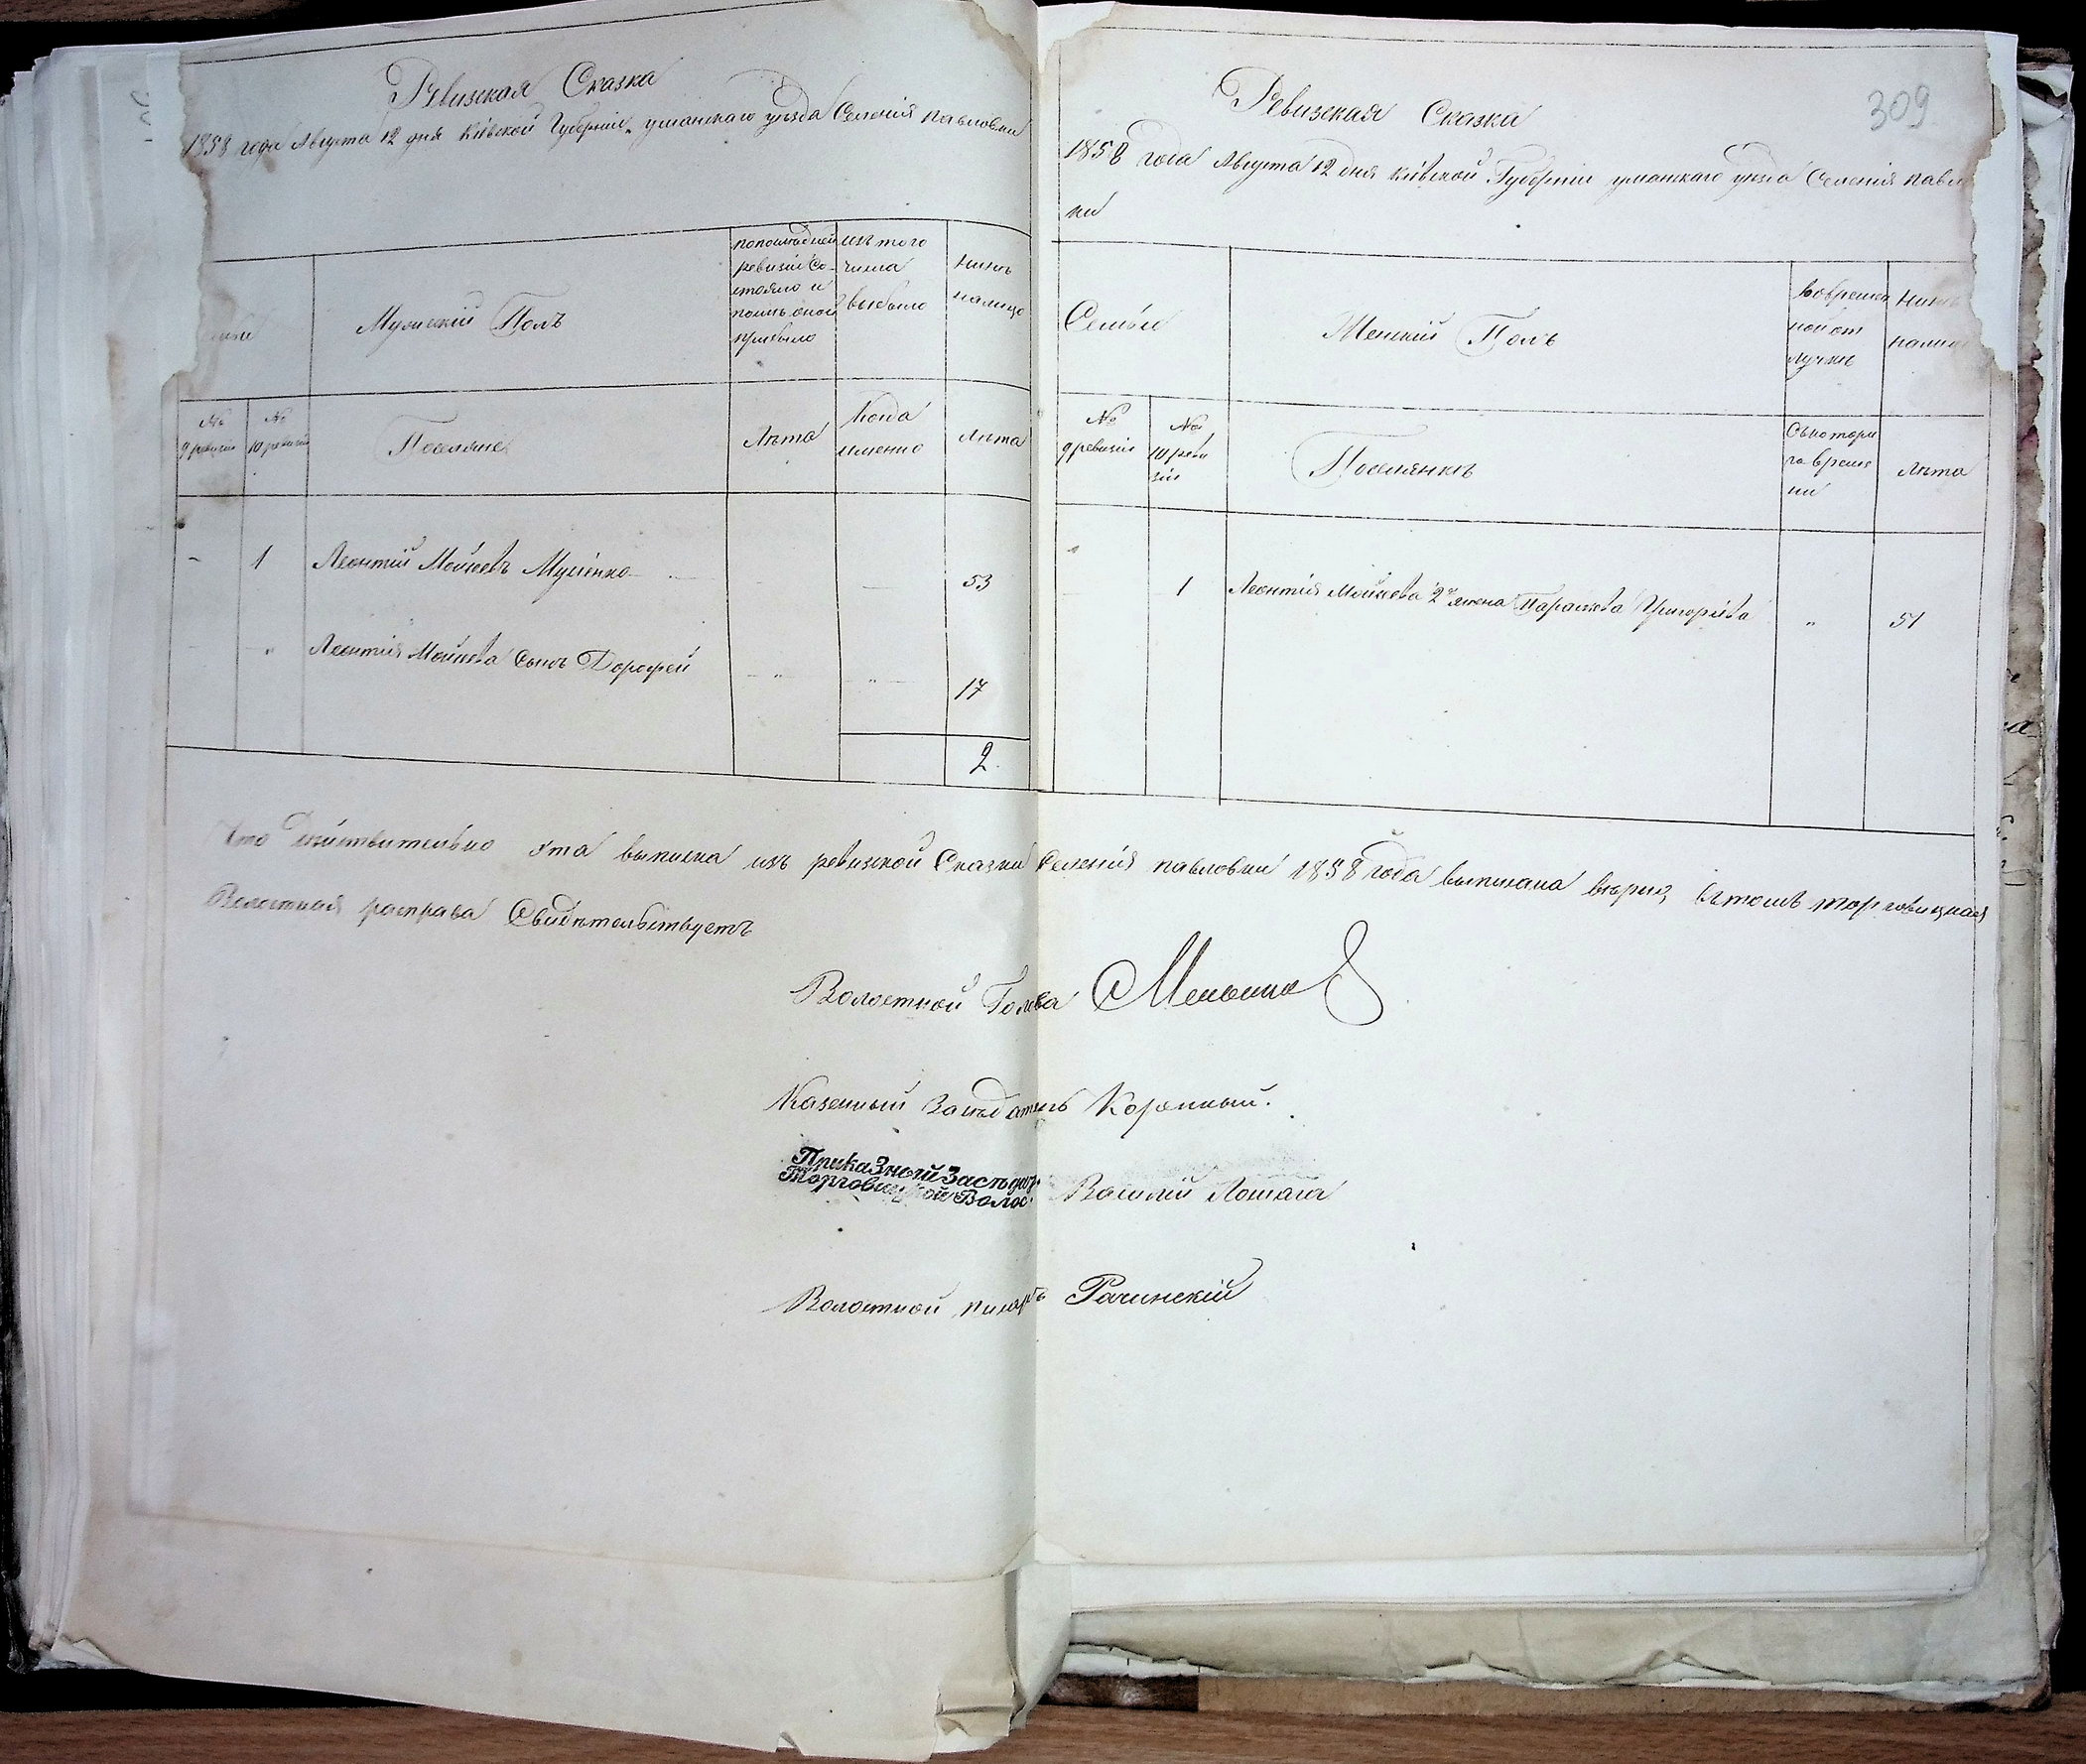 Ревизская Сказка
1858 года Августа 12 дня Кіевской Губерніи уманскаго уезда Селенія павловки
Мужескій Полъ
попоследней
ревизіи Со-
стояло и
послѣ оной
прибыло
изъ того
числа
выбыло
Нынѣ
налицо
№
9 ревизіи
№
10 ревизіи
Поселяне
Лѣта
Когда
именно
Лѣта
1
Леонтій Мойсеевъ
53
Леонтія Мойсеева Сынъ Дорофей
17
2
309
Ревизская Сказка
1858 года Августа 12 дня Кіевской Губерніи уманскаго уезда Селенія павло
ки
Семьи
Женскій Полъ
Вовремен
ной от
лучкѣ
Нынѣ
налицо
№
9 ревизіи
№
10 реви
зіи
Поселянкѣ
Съкотора
го време
ни
Лѣта
1
Леонтія Мойсеева 2я жена Параскева Григоріева
51
Что Действительно эта выписка изъ ревизской Сказки Селенія павловки 1858 года выписана верно, вътомъ торговицкая
Волостная расправа Свидѣтельствуетъ
Волостной Голова
Казенный Заседатель
Приказный Заседат.
Торговицкой Волос.
Василій
Волостной писарь Рачинскій